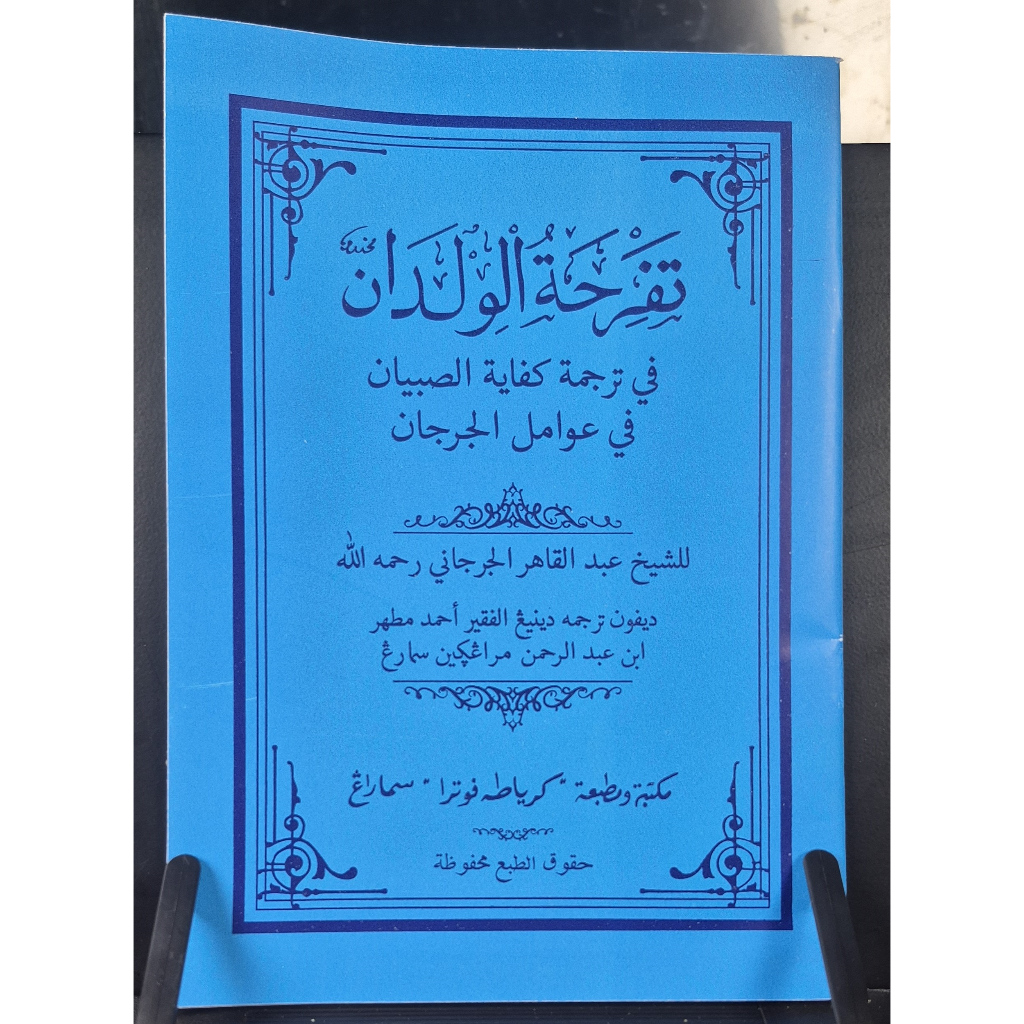 تَفْرِحَةُ الْوِلْدَانْ
في ترجمة كفاية الصبيان
في عوامل الجرجان
للشيخ عبد القاهر الجرجاني رحمه الله
ديفون ترجمه دينيڠ الفقير أحمد مطهر
ابن عبد الرحمن مراڠڮين سمارڠ
مكتبة ومطبعة "كرياطه فوترا" سماراڠ
حقوق الطبع محفوظة